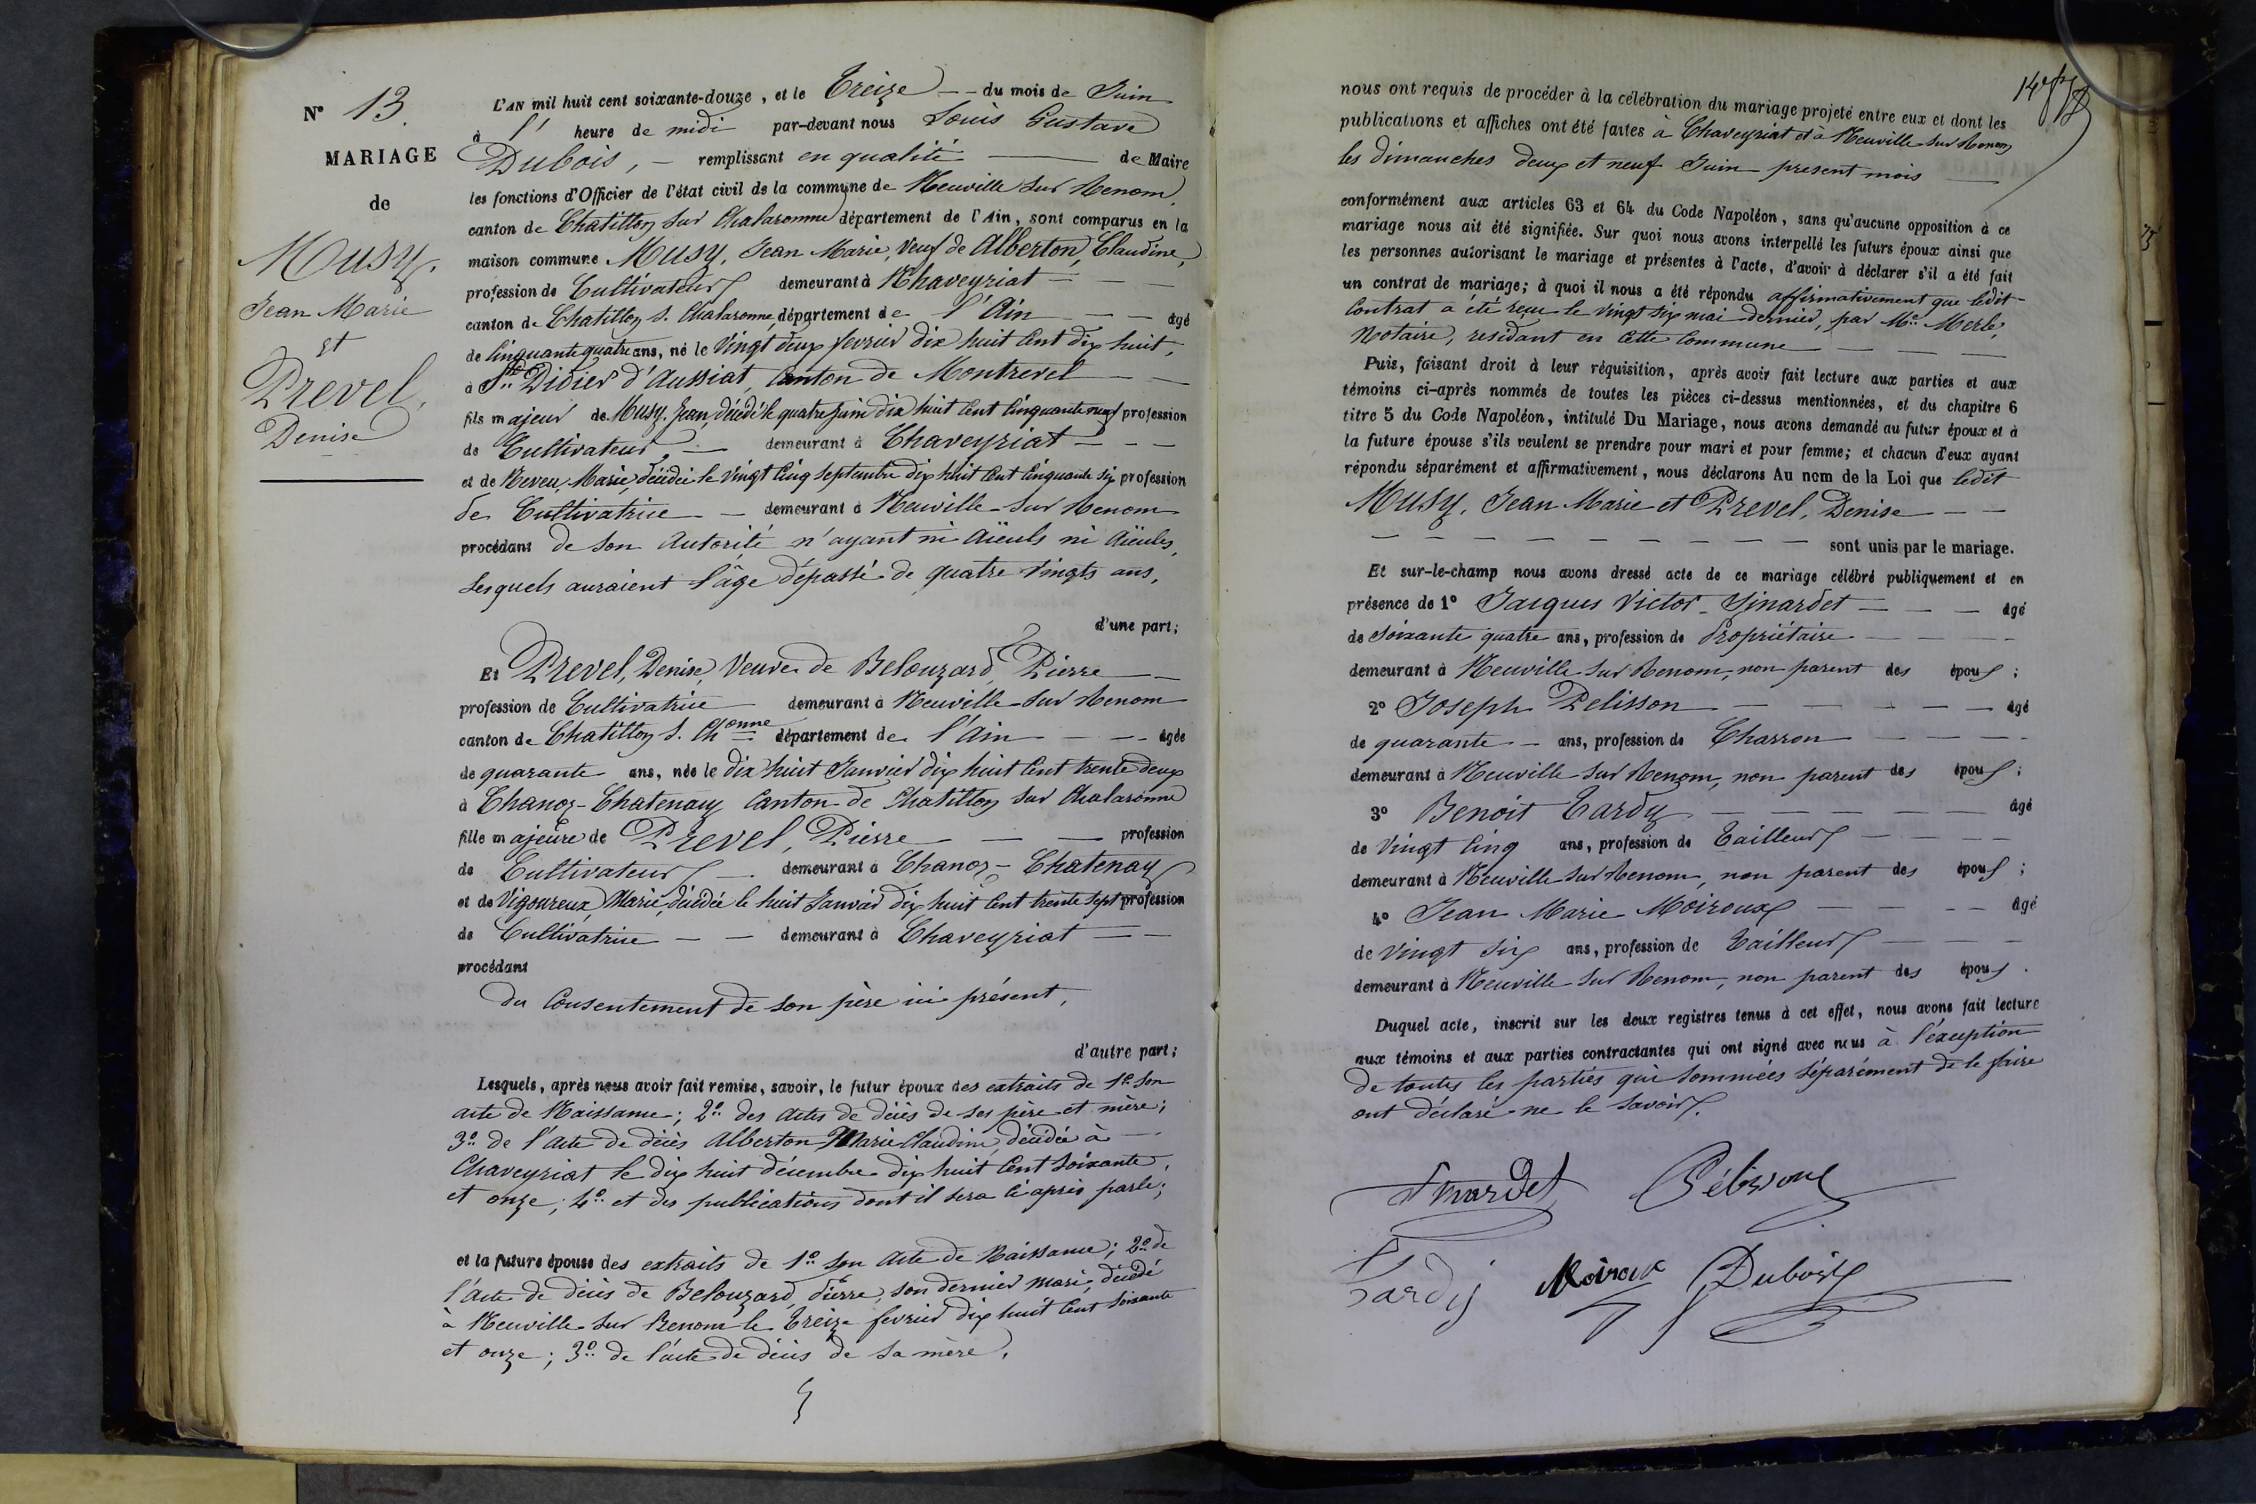 N° 13.
MARIAGE
de
Musy,
Jean Marie
et
Prevel,
Denise
L'AN mil huit cent soixante-douze, et le Treize du mois de Juin
à l' heure de midi par-devant nous Louis Gustave
Dubois, remplissant en qualité de Maire
les fonctions d'Officier de l'état civil de la commune de Neuville sur Renom,
canton de Chatillon sur Chalaronne département de l'Ain, sont comparus en la
maison commune Musy, Jean Marie, Veuf de Alberton, Claudine,
profession de Cultivateur demeurant à Chaveyriat
canton de Chatillon s. Chalaronne, département de l'Ain âgé
de Cinquante quatre ans, né le Vingt deux fevrier dix huit Cent dix huit,
à St. Didier d'Aussiat, Canton de Montrevel
fils majeur de Musy, Jean, décédé le quatre Juin dix huit Cent Cinquante neuf profession
de Cultivateur, demeurant à Chaveyriat
et de Neveu, Marie, décédée le Vingt Cinq Septembre dix huit Cent Cinquante Six profession
de Cultivatrice demeurant à Neuville Sur Renom
procédant de Son Autorité n'ayant ni Aïeuls ni Aïeules,
Lesquels auraient l'âge dépassé de quatre Vingts ans,
d'une part;
Et Prevel, Denise, Veuve de Belouzard, Pierre
profession de Cultivatrice demeurant à Neuville Sur Renom
canton de Chatillon s. Chonne département de l'Ain âgée
de quarante ans, née le dix huit Janvier dix huit Cent trente deux
à Chanoz-Chatenay Canton de Chatillon sur Chalaronne
fille majeure de Prevel, Pierre profession
de Cultivateur demeurant à Chanoz-Chatenay
et de Vigoureux, Marie, décédée le huit Janvier dix huit Cent trente Sept profession
de Cultivatrice demeurant à Chaveyriat
procédant
du Consentement de Son père ici présent,
d'autre part;
Lesquels, après nous avoir fait remise, savoir, le futur époux des extraits de 1° Son
acte de Naissance; 2° des Actes de décès de Ses père et mère;
3° de l'Acte de décès Alberton Marie Claudine, décédée à
Chaveyriat le dix huit décembre dix huit Cent Soixante,
et onze; 4° et des publications dont il sera ci après parlé;
et la future épouse des extraits de 1° Son Acte de Naissance; 2° de
l'Acte de décès de Belouzard, Pierre, son dernier mari, décédé
à Neuville sur Renom le Treize fevrier dix huit Cent Soixante
et onze; 3° de l'acte de décès de Sa mère.
nous ont requis de procéder à la célébration du mariage projeté entre eux et dont les
publications et affiches ont été faites à Chaveyriat et à Neuville sur Renom
les dimanches deux et neuf Juin present mois
conformément aux articles 63 et 64 du Code Napoléon, sans qu'aucune opposition à ce
mariage nous ait été signifiée. Sur quoi nous avons interpellé les futurs époux ainsi que
les personnes autorisant le mariage et présentes à l'acte, d'avoir à déclarer s'il a été fait
un contrat de mariage; à quoi il nous a été répondu affirmativement que ledit
Contrat a été reçu le vingt six mai dernier, par Me. Merle,
Notaire, residant en Cette Commune
Puis, faisant droit à leur réquisition, après avoir fait lecture aux parties et aux
témoins ci-après nommés de toutes les pièces ci-dessus mentionnées, et du chapitre 6
titre 5 du Code Napoléon, intitulé Du Mariage, nous avons demandé au futur époux et à
la future épouse s'ils veulent se prendre pour mari et pour femme; et chacun d'eux ayant
répondu séparément et affirmativement, nous déclarons Au nom de la Loi que ledit
Musy, Jean Marie et Prevel, Denise
sont unis par le mariage.
Et sur-le-champ nous avons dressé acte de ce mariage célébré publiquement et en
présence de 1° Jacques Victor Sinardet âgé
de Soixante quatre ans, profession de Propriétaire
demeurant à Neuville Sur Renom, non parent des époux;
2° Joseph Pelisson âgé
de quarante ans, profession de Charron
demeurant à Neuville Sur Renom, non parent des époux;
3° Benoit Tardy âgé
de Vingt Cinq ans, profession de Tailleur
demeurant à Neuville Sur Renom, non parent des époux;
4° Jean Marie Moiroux âgé
de Vingt Six ans, profession de Tailleur
demeurant à Neuville Sur Renom, non parent des époux.
Duquel acte, inscrit sur les deux registres tenus à cet effet, nous avons fait lecture
aux témoins et aux parties contractantes qui ont signé avec nous à l'exception
de toutes les parties qui Sommées Séparément de le faire
ont déclaré ne le savoir.
Sinardet Pélisson
Tardy Moiroux Dubois